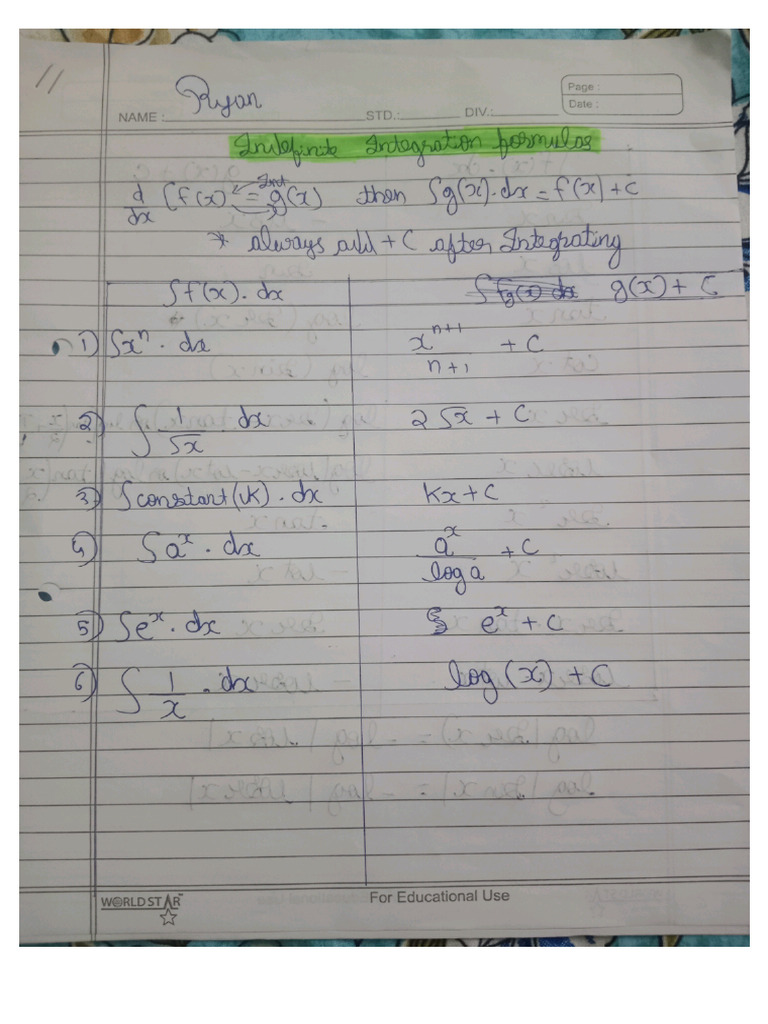 11
Ryan
Page :
Date :
NAME : STD.: DIV.:
Indefinite Integration formulas
Int
d/dx [f(x) = g(x) then ∫g(x)·dx = f(x) + C
* always add + C after Integrating
∫f(x)·dx g(x) + C
1) ∫xⁿ · dx xⁿ⁺¹/n+1 + C
2) ∫ 1/√x dx 2√x + C
3) ∫constant(K)·dx Kx + C
4) ∫aˣ · dx aˣ/log a + C
5) ∫eˣ · dx eˣ + C
6) ∫ 1/x · dx log(x) + C
WORLD STAR For Educational Use